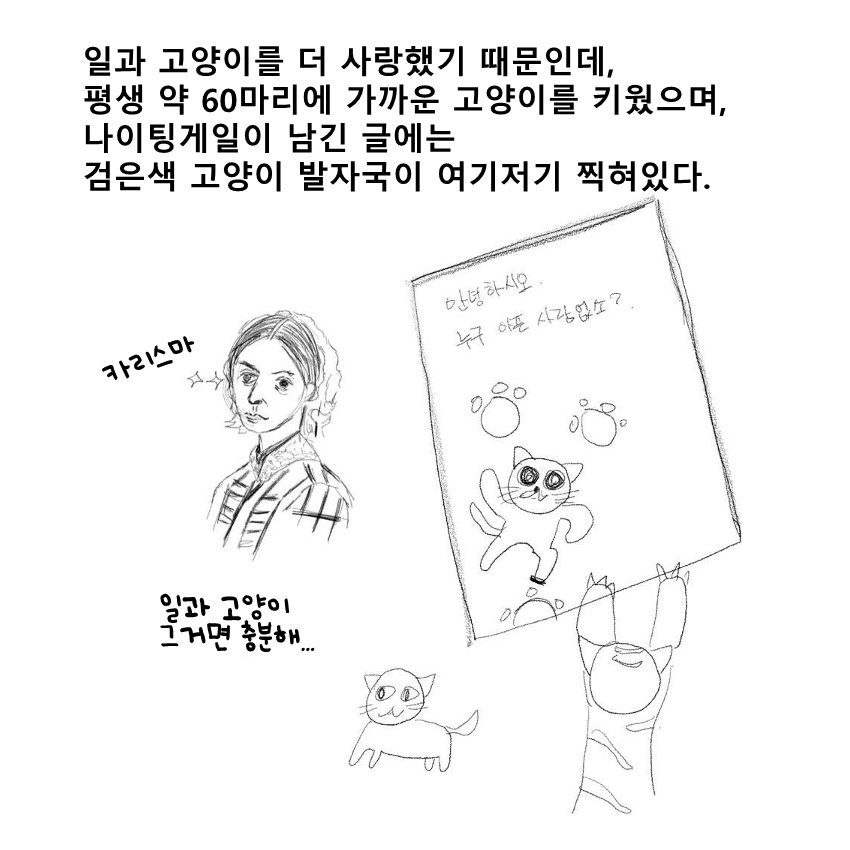 일과 고양이를 더 사랑했기 때문인데,
평생 약 60마리에 가까운 고양이를 키웠으며,
나이팅게일이 남긴 글에는
검은색 고양이 발자국이 여기저기 찍혀있다.
안녕하시오.
누구 아픈 사람없소?.
카리스마
일과 고양이
그거면 충분해...